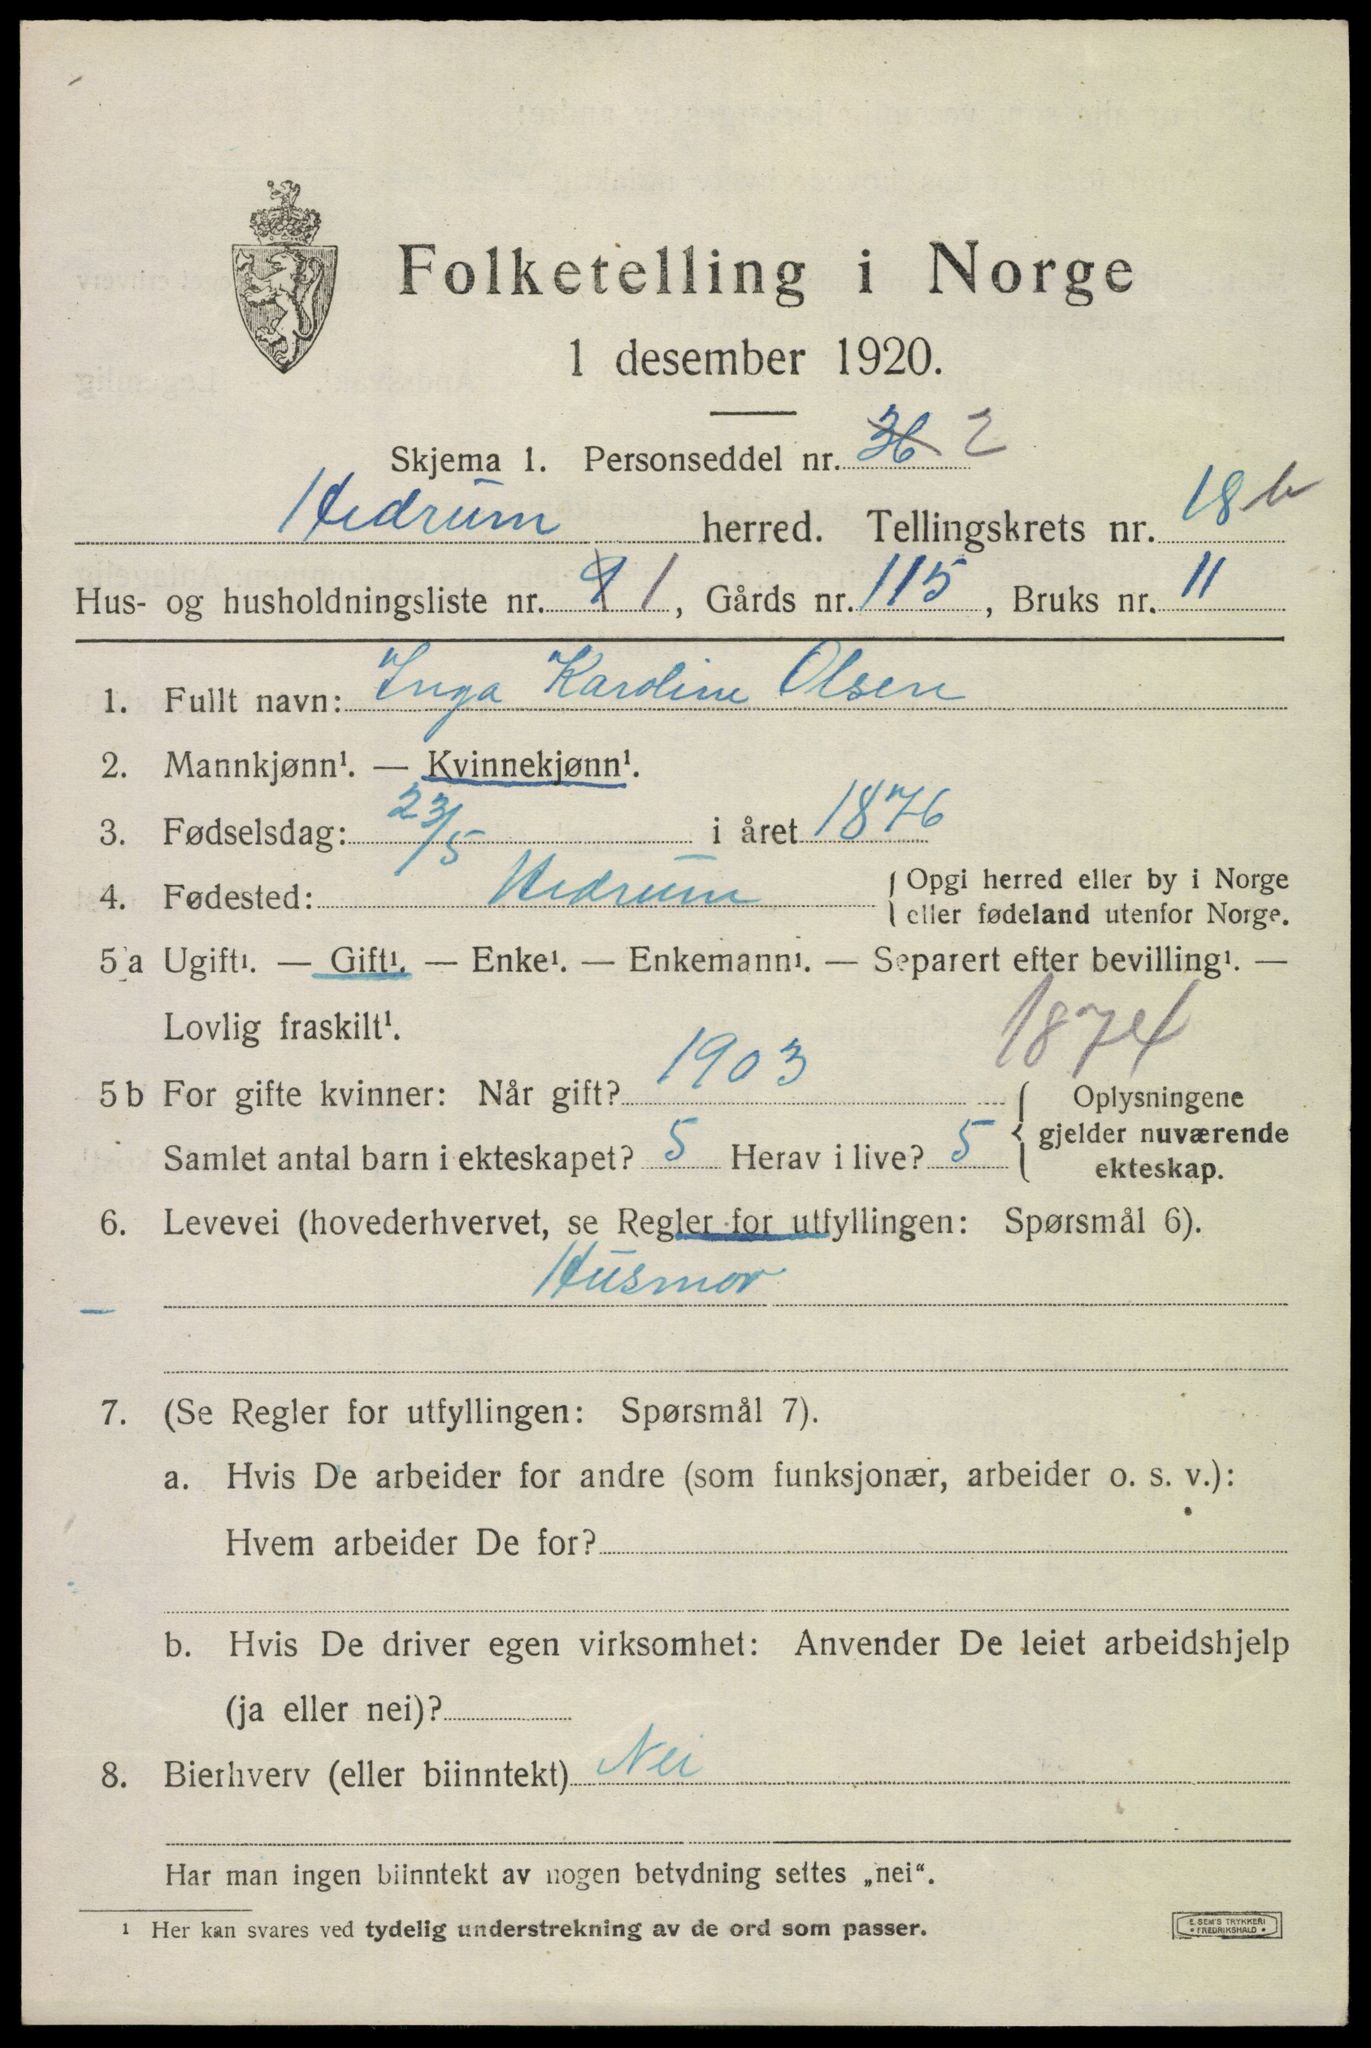 Folketelling i Norge
1 desember 1920.
Skjema 1. Personseddel nr. 36 2
Hedrum herred. Tellingskrets nr. 18 b
Hus- og husholdningsliste nr. 9 1, Gårds nr. 115, Bruks nr. 11
1. Fullt navn: Inga Karoline Olsen
2. Mannkjønn¹. — Kvinnekjønn¹.
3. Fødselsdag: 23/5 i året 1876
4. Fødested: Hedrum { Opgi herred eller by i Norge
eller fødeland utenfor Norge.
5 a Ugift¹. — Gift¹. — Enke¹. — Enkemann¹. — Separert efter bevilling¹. —
Lovlig fraskilt¹.
1874
5 b For gifte kvinner: Når gift? 1903 { Oplysningene
gjelder nuværende
ekteskap.
Samlet antal barn i ekteskapet? 5 Herav i live? 5
6. Levevei (hovederhvervet, se Regler for utfyllingen: Spørsmål 6).
— Husmor
7. (Se Regler for utfyllingen: Spørsmål 7).
a. Hvis De arbeider for andre (som funksjonær, arbeider o. s. v.):
Hvem arbeider De for?
b. Hvis De driver egen virksomhet: Anvender De leiet arbeidshjelp
(ja eller nei)?
8. Bierhverv (eller biinntekt) Nei
Har man ingen biinntekt av nogen betydning settes „nei“.
¹ Her kan svares ved tydelig understrekning av de ord som passer.
E. SEM'S TRYKKERI
• FREDRIKSHALD •